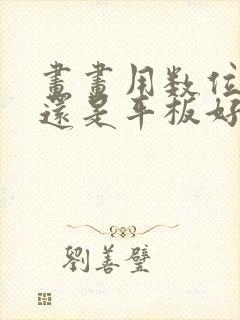 畫畫用数位
還是平板好
劉善璧